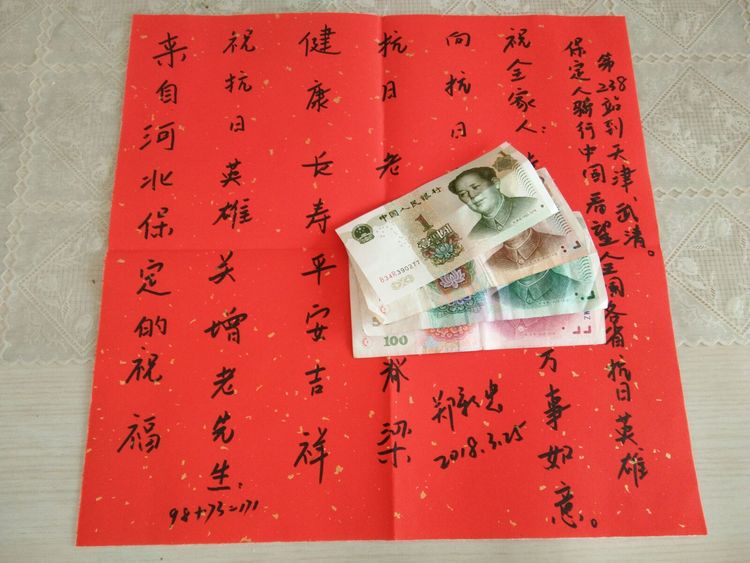 来自河北保定的祝福
祝抗日英雄关增老先生:
98+73=171
健康长寿平安吉祥
抗日老 脊梁
向抗日
郑新忠
2018.3.25
祝全家人: 万事如意。
保定人骑行中国看望全国各省抗日英雄
第238站到天津、武清。
中国人民银行
1
壹圆
100